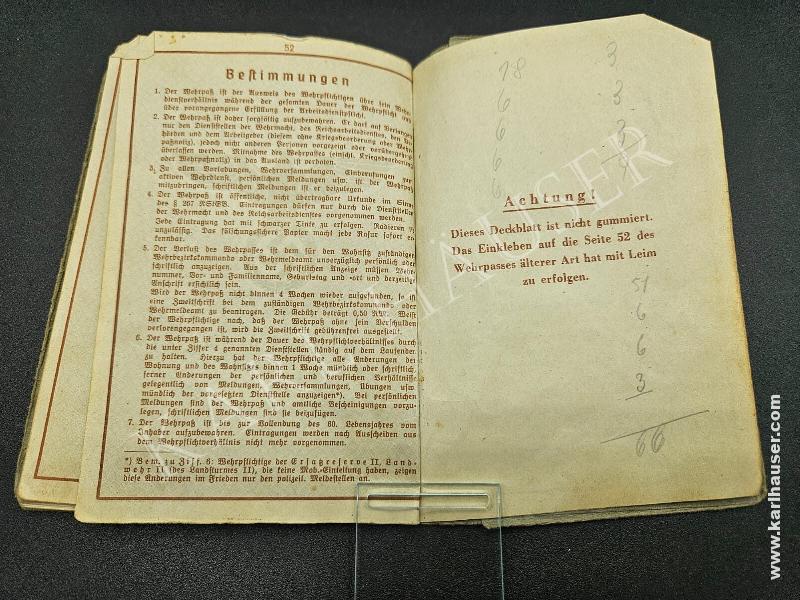 52
Bestimmungen
1. Der Wehrpaß ist der Ausweis des Wehrpflichtigen über sein Wehr-
dienstverhältnis während der gesamten Dauer der Wehrpflicht und
über vorangegangene Erfüllung der Arbeitsdienstpflicht.
2. Der Wehrpaß ist daher sorgfältig aufzubewahren. Er darf auf
nur den Dienststellen der Wehrmacht, des Reichsarbeitsdienstes, den
hörden und dem Arbeitgeber (diesem ohne Kriegsbeorderung oder
paßnotiz), jedoch nicht anderen Personen vorgezeigt oder
überlassen werden. Mitnahme des Wehrpasses (einschl. Kriegsbeorderung
oder Wehrpaßnotiz) in das Ausland ist verboten.
3. Zu allen Vorladungen, Wehrversammlungen, Einberufungen
aktiven Wehrdienst, persönlichen Meldungen usw. ist der Wehrpaß
mitzubringen, schriftlichen Meldungen ist er beizulegen.
4. Der Wehrpaß ist öffentliche, nicht übertragbare Urkunde im Sinne
des § 267 RStGB. Eintragungen dürfen nur durch die Dienststellen
der Wehrmacht und des Reichsarbeitsdienstes vorgenommen werden.
Jede Eintragung hat mit schwarzer Tinte zu erfolgen. Radieren ist
unzulässig. Das fälschungssichere Papier macht jede Rasur sofort er-
kennbar.
5. Der Verlust des Wehrpasses ist dem für den Wohnsitz zuständigen
Wehrbezirkskommando oder Wehrmeldeamt unverzüglich persönlich oder
schriftlich anzuzeigen. Aus der schriftlichen Anzeige müssen Wehr-
nummer, Vor- und Familienname, Geburtstag und -ort und derzeitige
Anschrift ersichtlich sein.
Wird der Wehrpaß nicht binnen 4 Wochen wieder aufgefunden, so ist
eine Zweitschrift bei dem zuständigen Wehrbezirkskommando oder
Wehrmeldeamt zu beantragen. Die Gebühr beträgt 0,50 RM. Weist
der Wehrpflichtige nach, daß der Wehrpaß ohne sein Verschulden
verlorengegangen ist, wird die Zweitschrift gebührenfrei ausgestellt.
6. Der Wehrpaß ist während der Dauer des Wehrpflichtverhältnisses durch
die unter Ziffer 4 genannten Dienststellen ständig auf dem Laufenden
zu halten. Hierzu hat der Wehrpflichtige alle Änderungen der
Wohnung und des Wohnsitzes binnen 1 Woche mündlich oder schriftlich,
ferner Änderungen der persönlichen und beruflichen Verhältnisse
gelegentlich von Meldungen, Wehrversammlungen, Übungen usw.
mündlich der vorgesetzten Dienststelle anzuzeigen*). Bei persönlichen
Meldungen sind der Wehrpaß und amtliche Bescheinigungen vorzu-
legen, schriftlichen Meldungen sind sie beizufügen.
7. Der Wehrpaß ist bis zur Vollendung des 60. Lebensjahres vom
Inhaber aufzubewahren. Eintragungen werden nach Ausscheiden aus
dem Wehrpflichtverhältnis nicht mehr vorgenommen.
*) Bem. zu Ziff. 6: Wehrpflichtige der Ersatzreserve II, Land-
wehr II (des Landsturmes II), die keine Mob.-Einteilung haben, zeigen
diese Änderungen im Frieden nur den polizeil. Meldestellen an.
18 3
6 3
6 3
6 9
6
Achtung!
Dieses Deckblatt ist nicht gummiert.
Das Einkleben auf die Seite 52 des
Wehrpasses älterer Art hat mit Leim
zu erfolgen.
51
6
6
3
66
KARL HÄUSER
www.karlhauser.com